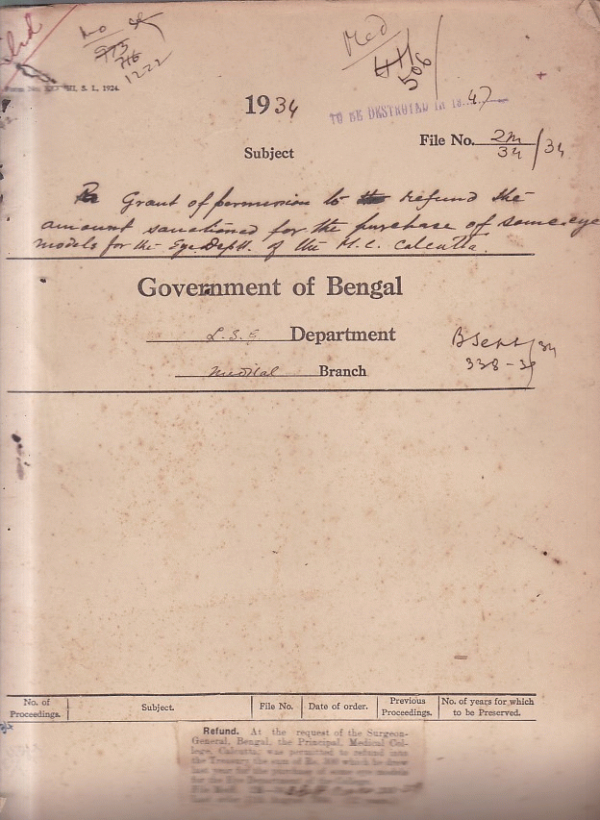 Med
506
S. I., 1924.
12-22
1934
TO BE DESTROYED IN 19 47
File No. 2M/34 / 34
Subject
Grant of permission to refund the
amount sanctioned for the purchase of some eye
models for the Eye Deptt. of the M.C. Calcutta.
Government of Bengal
L.S.G Department
Medical Branch
B Sept / 34
338-39
No. of Proceedings. Subject. File No. Date of order. Previous Proceedings. No. of years for which to be Preserved.
Refund. At the request of the Surgeon-
General, Bengal, the Principal, Medical Col-
lege, Calcutta, was permitted to refund into
the Treasury the sum of Rs. 300 which he drew
last year for the purchase of some eye models
for the Eye Department of the College.